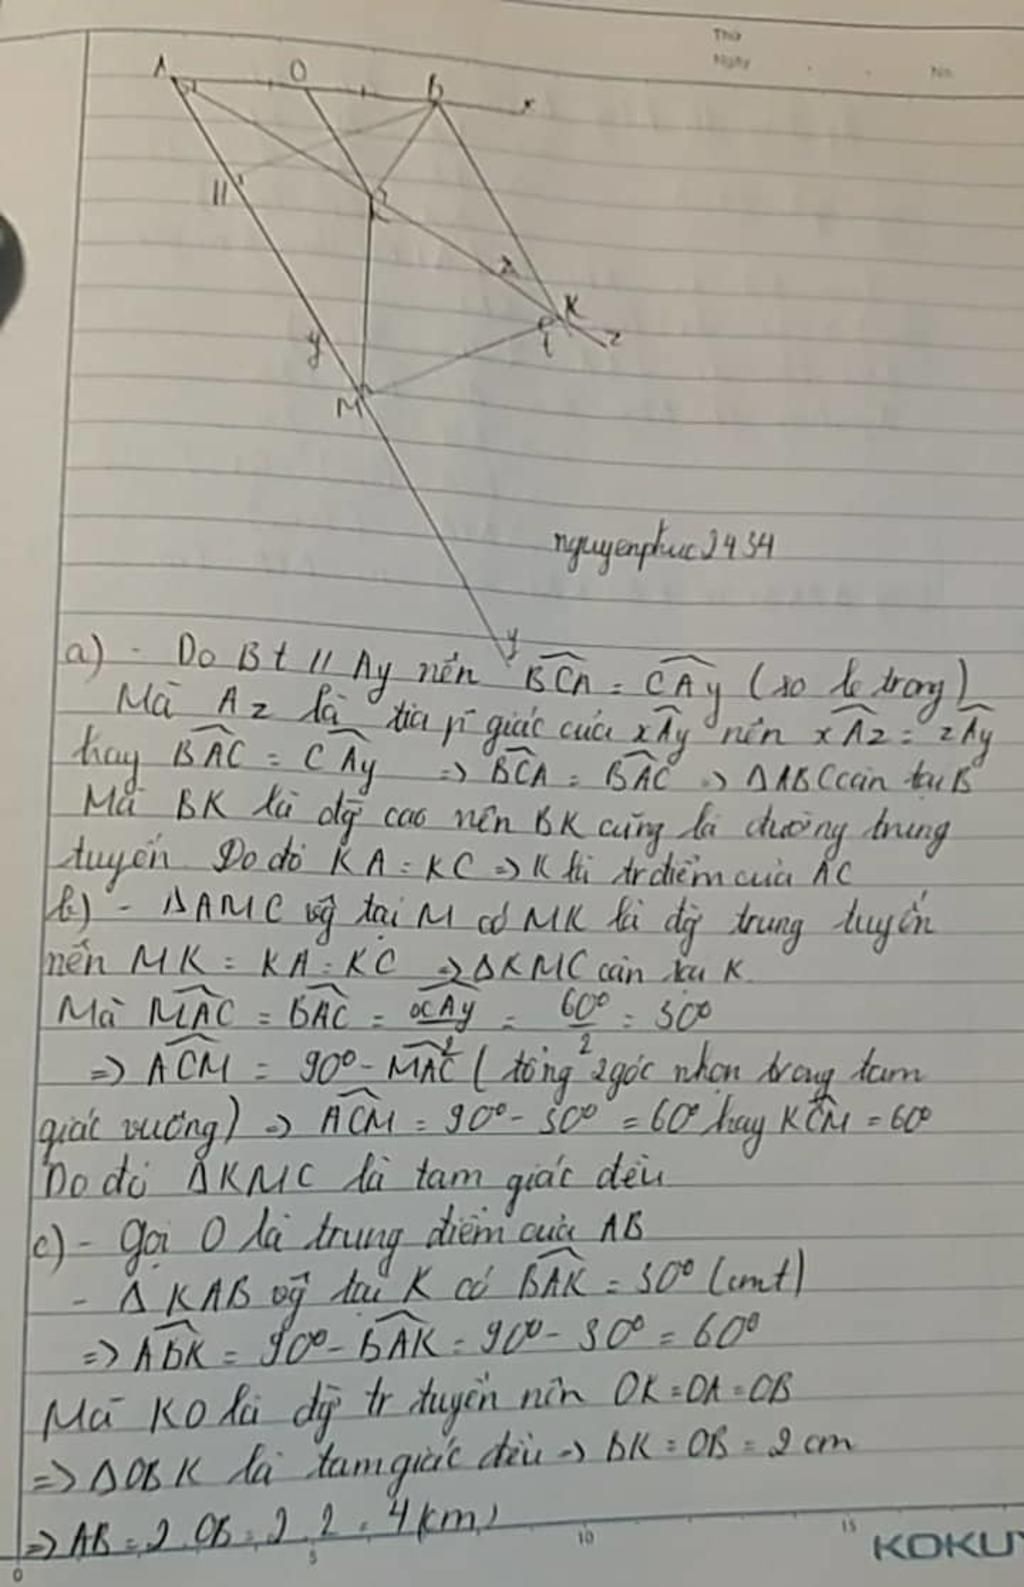 Thứ
Ngày
No.
A O B x
H
K
z
y
M
nguyenphuc2434
y
a) - Do Bt // Ay nên BCA = CAy (so le trong)
Mà Az là tia pĩ giác của xAy nên xAz = zAy
hay BAC = CAy => BCA = BAC => ΔABC cân tại B
Mà BK là đg cao nên BK cũng là đường trung
tuyến Do đó KA = KC => K là tr điểm của AC
b) - ΔAMC vg tại M có MK là đg trung tuyến
nên MK = KA = KC => ΔKMC cân tại K.
Mà MAC = BAC = xAy/2 = 60°/2 = 30°
=> ACM = 90° - MAC (tổng 2 góc nhọn trong tam
giác vuông) => ACM = 90° - 30° = 60° hay KCM = 60°
Do đó ΔKMC là tam giác đều
c) - Gọi O là trung điểm của AB
- ΔKAB vg tại K có BAK = 30° (cmt)
=> ABK = 90° - BAK = 90° - 30° = 60°
Mà KO là đg tr tuyến nên OK = OA = OB
=> ΔOBK là tam giác đều => BK = OB = 2 cm
=> AB = 2.OB = 2.2 = 4 (cm)
0 5 10 15
KOKUY